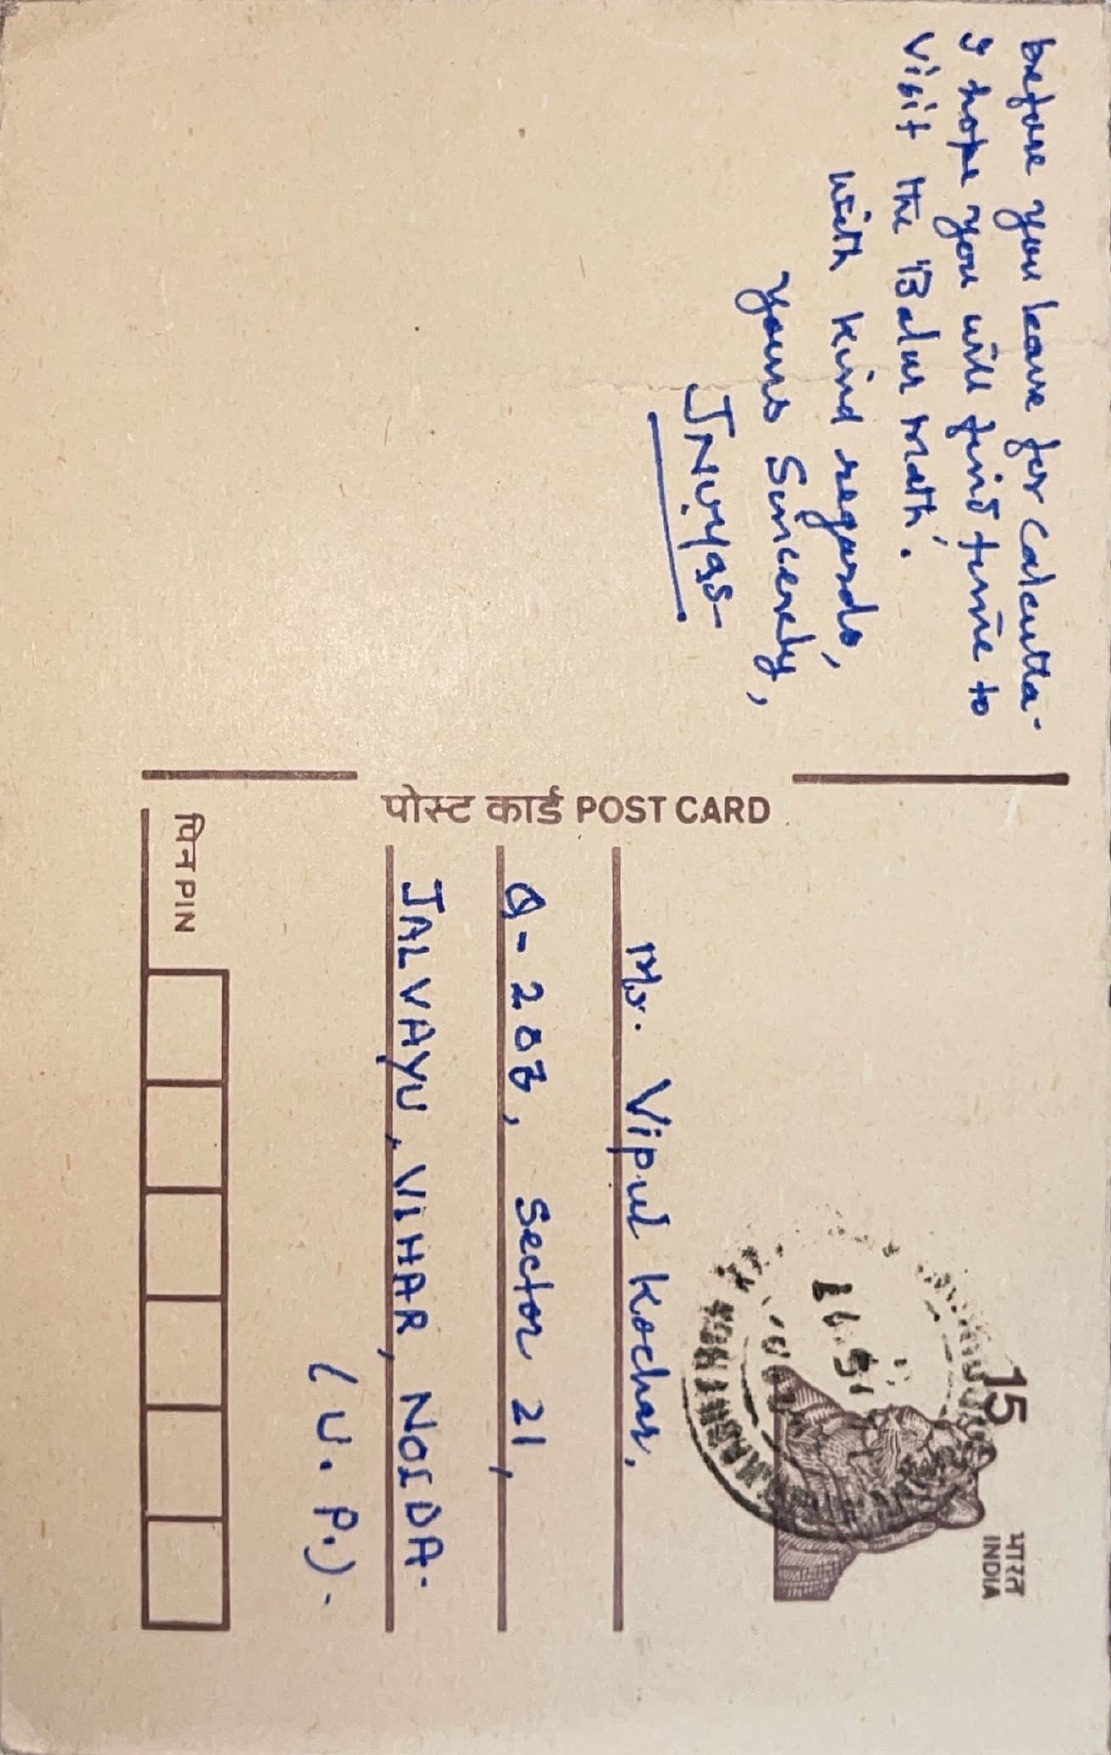 before you leave for Calcutta.
I hope you will find time to
visit the 'Balur math'.
With kind regards,
yours Sincerely,
JNVyas
पोस्ट कार्ड POST CARD
15
भारत
INDIA
Mr. Vipul Kochar,
Q-203, Sector 21,
JALVAYU, VIHAR, NOIDA.
(U.P.).
पिन PIN